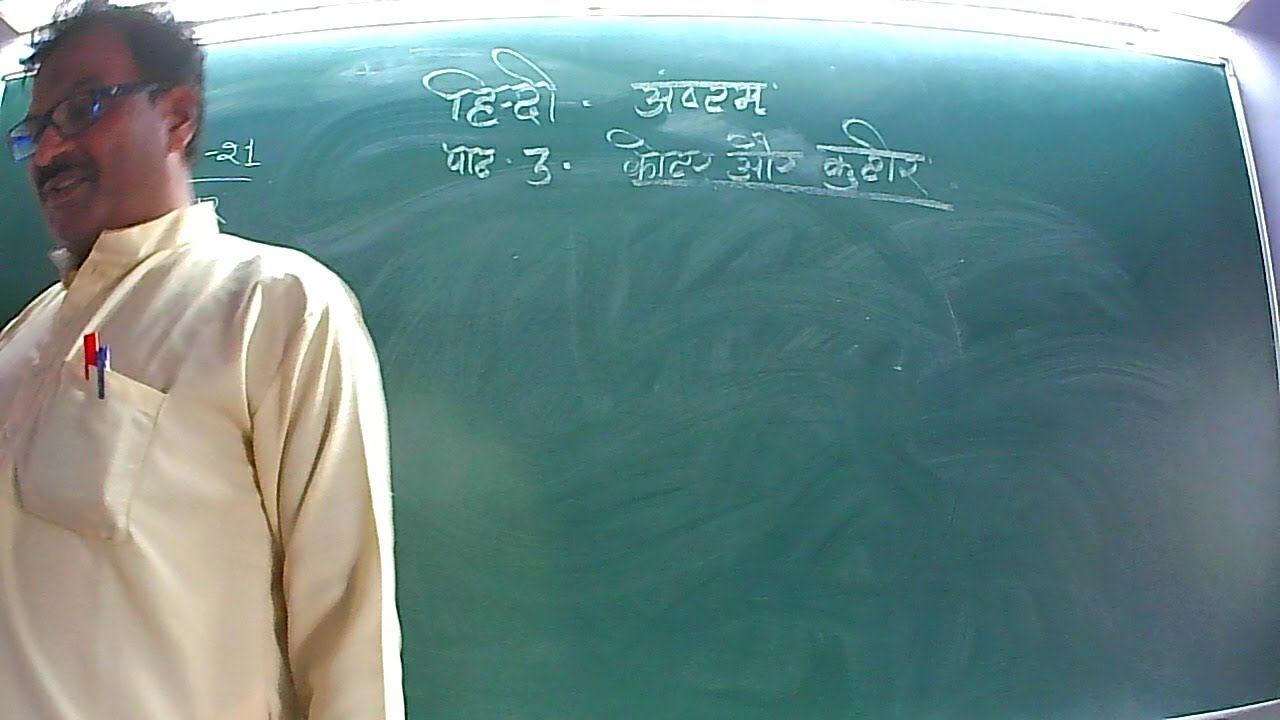 हिन्दी. अंवरम
पाठ. 3. कोटर और कुटीर
-21